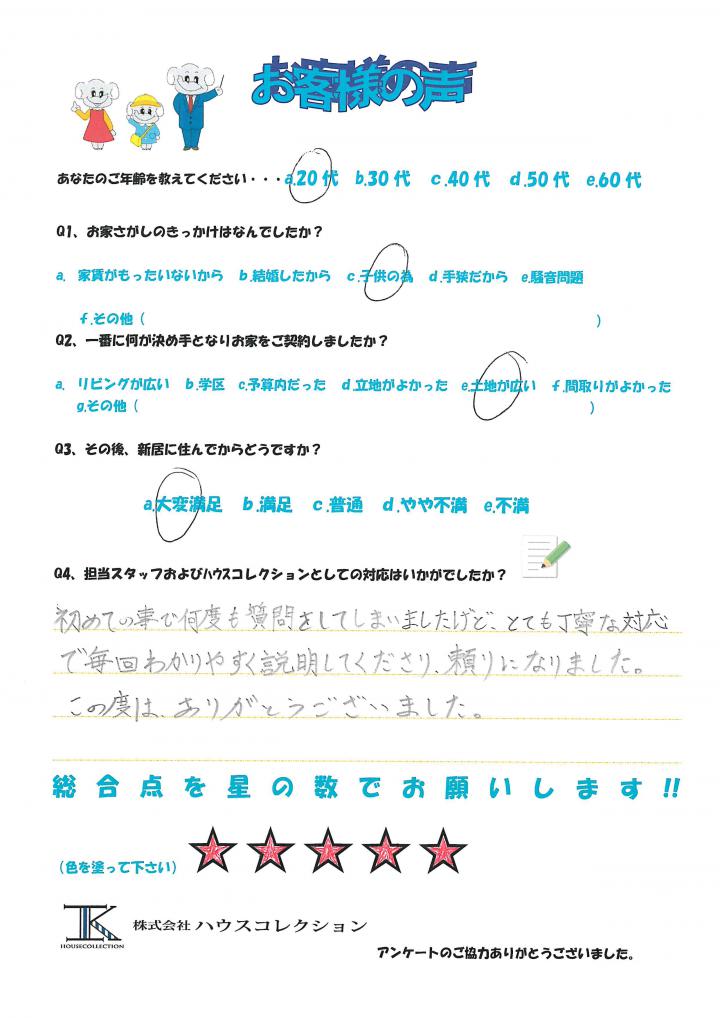 お客様の声
あなたのご年齢を教えてください・・・a.20代 b.30代 c.40代 d.50代 e.60代
Q1、お家さがしのきっかけはなんでしたか？
a. 家賃がもったいないから b.結婚したから c.子供の為 d.手狭だから e.騒音問題
f.その他（ ）
Q2、一番に何が決め手となりお家をご契約しましたか？
a. リビングが広い b.学区 c.予算内だった d.立地がよかった e.土地が広い f.間取りがよかった
g.その他（ ）
Q3、その後、新居に住んでからどうですか？
a.大変満足 b.満足 c.普通 d.やや不満 e.不満
Q4、担当スタッフおよびハウスコレクションとしての対応はいかがでしたか？
初めての事で何度も質問をしてしまいましたけど、とても丁寧な対応
で毎回わかりやすく説明してくださり、頼りになりました。
この度は、ありがとうございました。
総合点を星の数でお願いします!!
（色を塗って下さい）
HK
HOUSECOLLECTION
株式会社 ハウスコレクション
アンケートのご協力ありがとうございました。